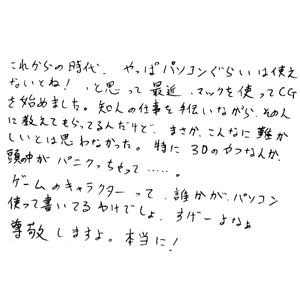 これからの時代、やっぱパソコンぐらいは使え
ないとね！、と思って最近、マックを使ってCG
を始めました。知人の仕事を手伝いながら、その人
に教えてもらってるんだけど、まさか、こんなに難か
しいとは思わなかった。特に3Dのやつなんか、
頭の中がパニクっちゃって……。
ゲームのキャラクターって、誰かが、パソコン
使って書いてるわけでしょ、すげーよなぁ
尊敬しますよ。本当に！